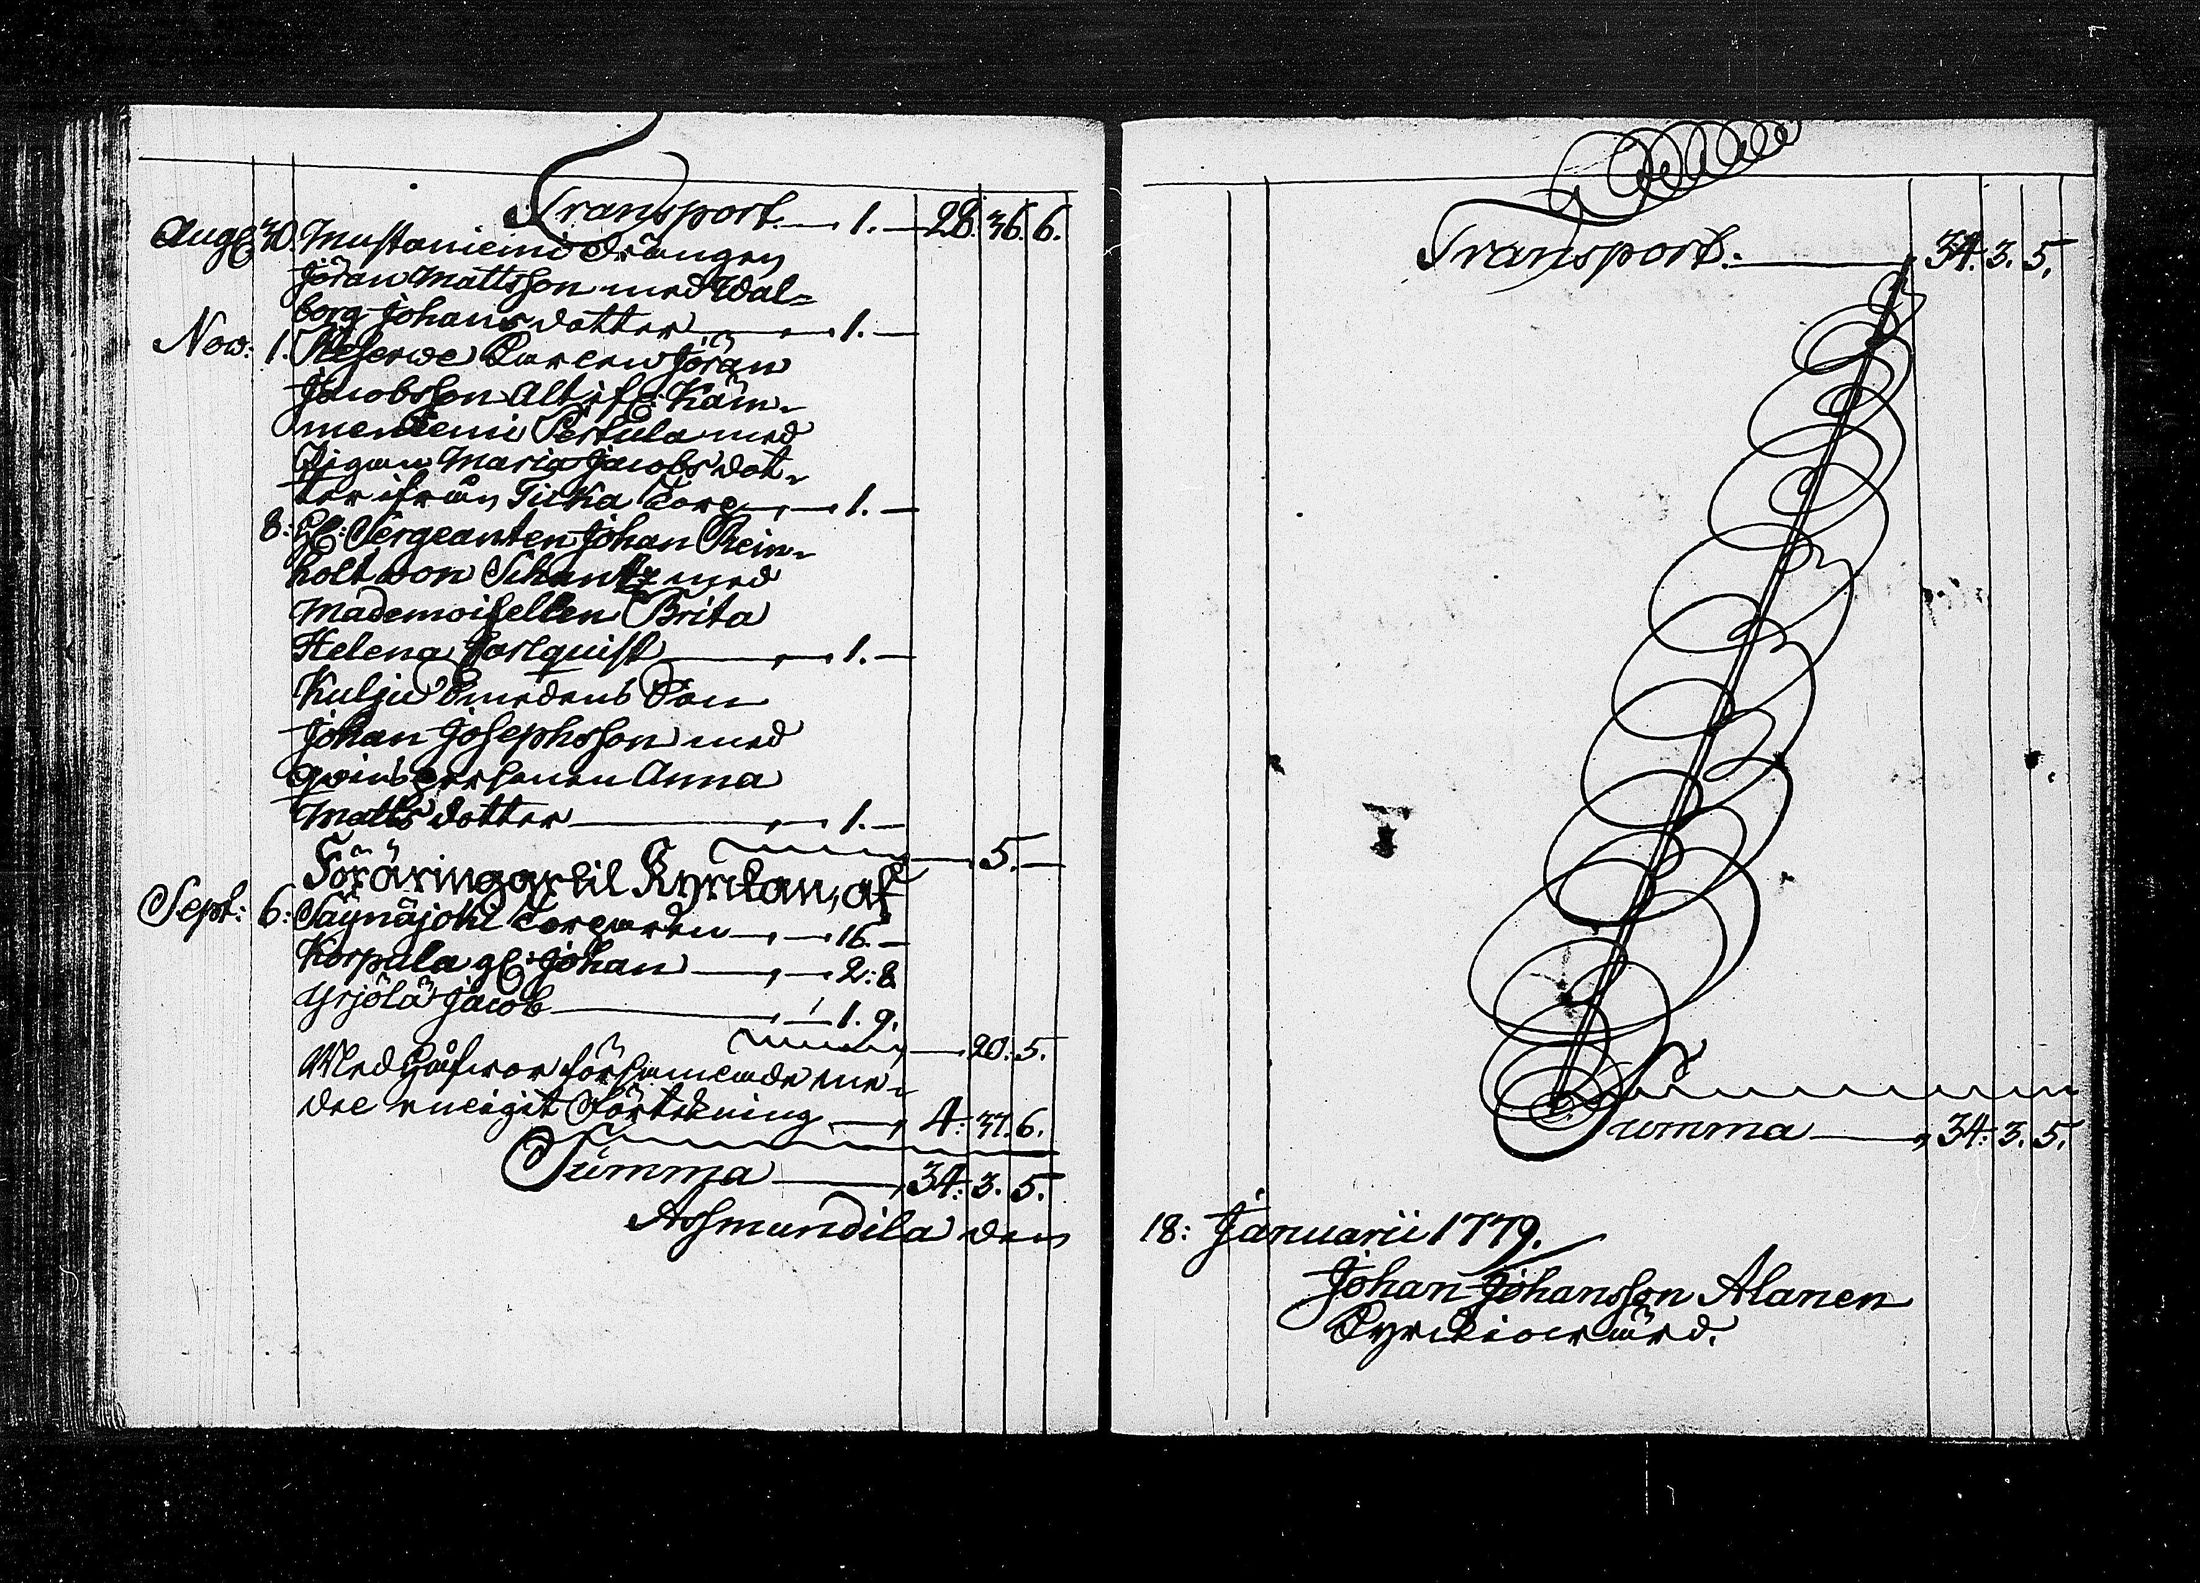 Transport. 1. 28. 36. 6.
Aug: 30. Mustaniemi Drängen
Jöran Mattsson med Wal-
borg Johans dotter 1.
Now: 1. Reserve Karlen Jöran
Jacobsson Alt ifr: Käm-
menniemi Pertula med
Pigan Maria Jacobs dot-
ter ifrån Tiuka Torp 1.
8: H: Sergeanten Johan Rein-
holt von Schantz med
Mademoisellen Brita
Helena Forlquist 1.
Kulju Smedens Son
Johan Josephsson med
qvinspersonen Anna
Matts dotter 1.
5.
Föräringar til Kyrckan, af
Sept: 6: Säynäjoki Torparen 16.
Korpula gl: Johan 2: 8
Yrjölä Jacob 1. 9.
20. 5.
Med Håfwor församlade
enligit Förtekning 4: 37. 6.
Summa 34. 3. 5.
Assmundila den
Transport. 34. 3. 5.
Summa 34. 3. 5.
18: Januarii 1779.
Johan Johansson Alanen
Kyrckiowärd.